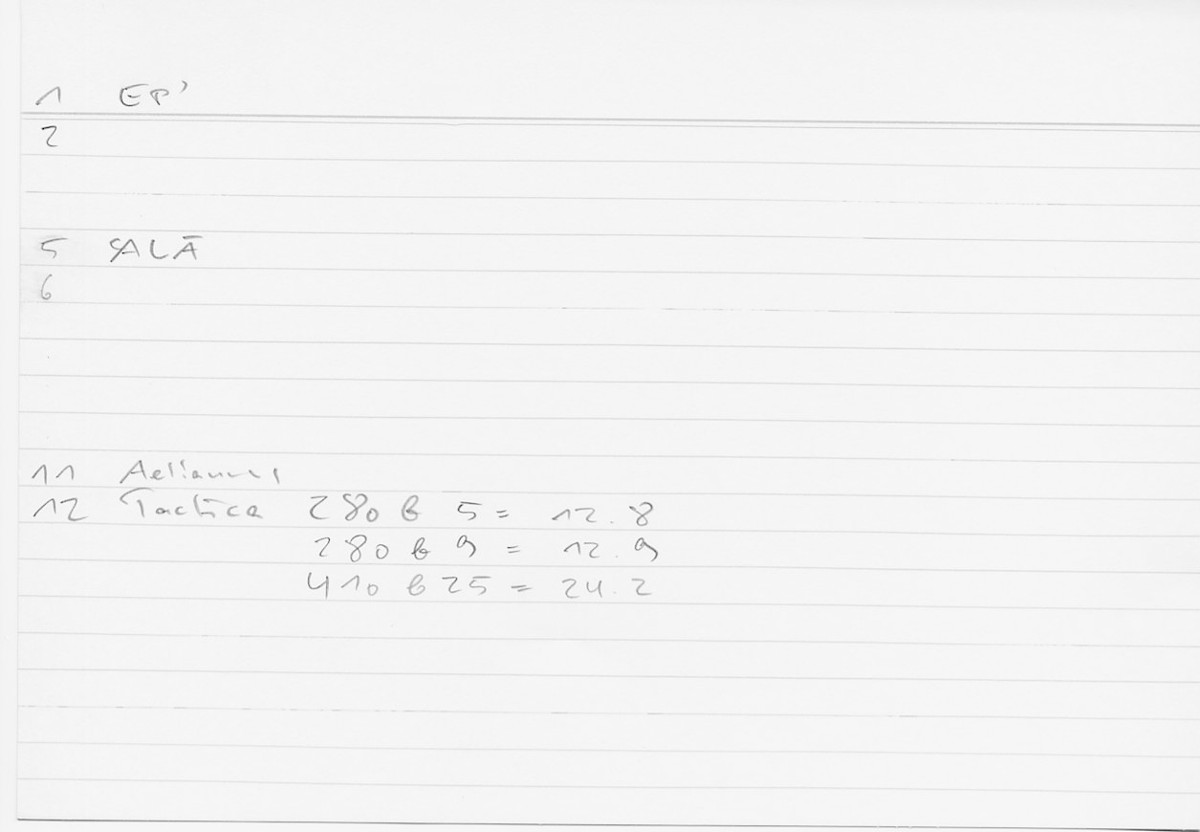 1 EP'
2
5 SALĀ
6
11 Aelianus
12 Tactica 280 b 5 = 12.8
280 b 9 = 12.9
410 b 25 = 24.2